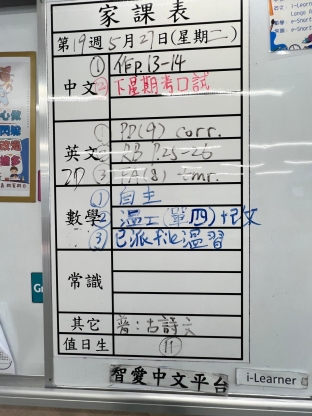 家課表
第19週5月27日(星期二)
中文
① 作P.13-14
② 下星期考口試
英文
2D
① PD(9) corr.
② RB P.25-26
③ EA(8) tmr.
數學
① 自主
② 溫工(單四)+改
③ 已派file溫習
常識
其它
齊:古詩文
值日生
⑪
智愛中文平台
i-Learner